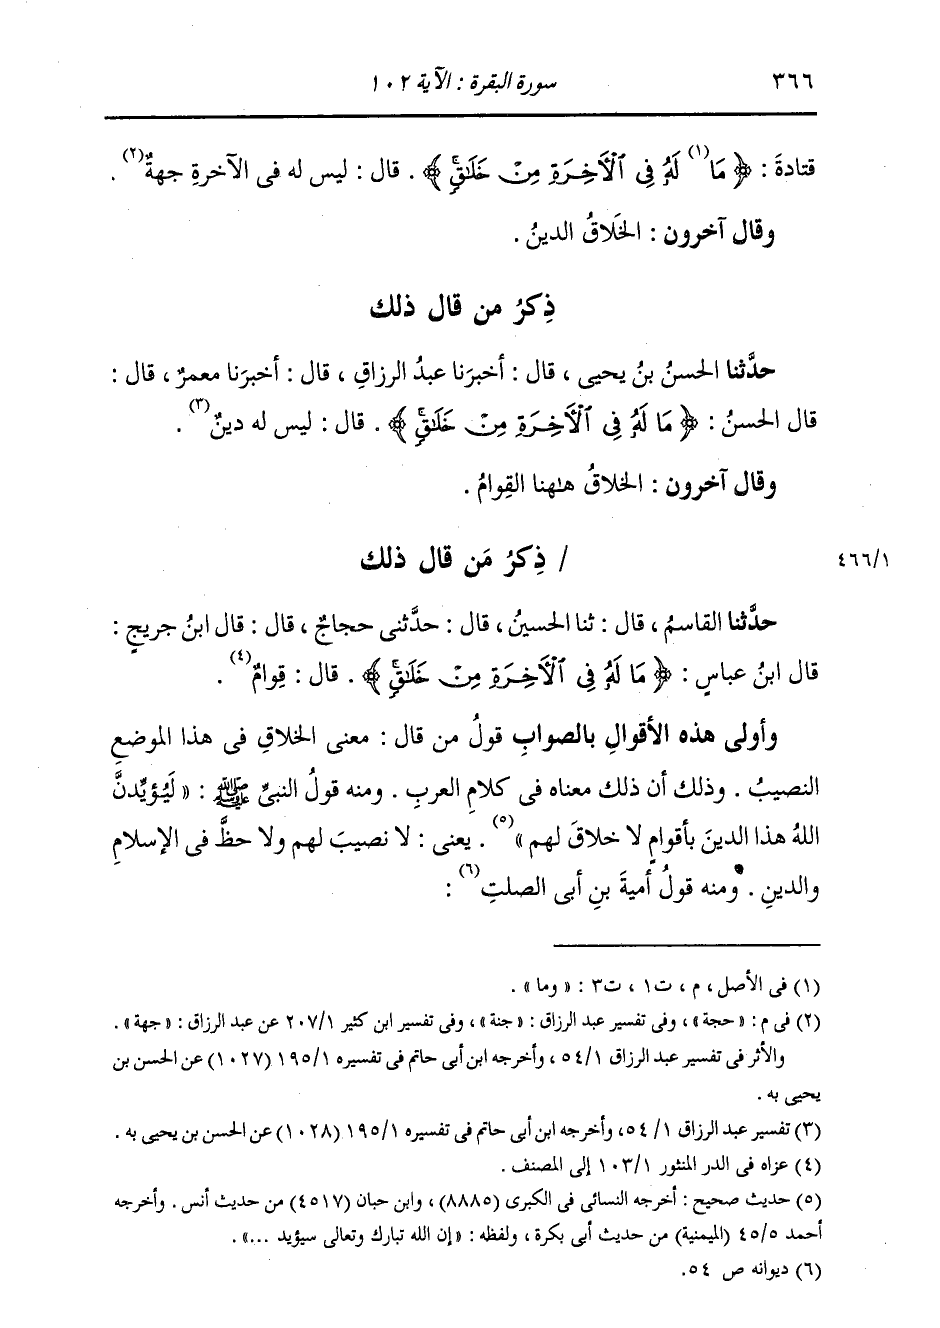 ٣٦٦ سورة البقرة : الآية ١٠٢
قتادةَ : ﴿ مَا(١) لَهُۥ فِى ٱلْأَخِرَةِ مِنْ خَلَٰقٍۚ ﴾ . قال : ليس له فى الآخرةِ جهةٌ(٢) .
وقال آخرون : الخَلاقُ الدينُ .
ذِكرُ من قال ذلك
حدَّثنا الحسنُ بنُ يحيى ، قال : أخبرَنا عبدُ الرزاقِ ، قال : أخبرَنا معمرٌ ، قال :
قال الحسنُ : ﴿ مَا لَهُۥ فِى ٱلْأَخِرَةِ مِنْ خَلَٰقٍۚ ﴾ . قال : ليس له دينٌ(٣) .
وقال آخرون : الخلاقُ هٰهنا القِوامُ .
/ ذِكرُ مَن قال ذلك ٤٦٦/١
حدَّثنا القاسمُ ، قال : ثنا الحسينُ ، قال : حدَّثنى حجاجٌ ، قال : قال ابنُ جريجٍ :
قال ابنُ عباسٍ : ﴿ مَا لَهُۥ فِى ٱلْأَخِرَةِ مِنْ خَلَٰقٍۚ ﴾ . قال : قِوامٌ(٤) .
وأولى هذه الأقوالِ بالصوابِ قولُ من قال : معنى الخلاقِ فى هذا الموضعِ
النصيبُ . وذلك أن ذلك معناه فى كلامِ العربِ . ومنه قولُ النبىِّ ﷺ : « لَيُؤيِّدنَّ
اللهُ هذا الدينَ بأقوامٍ لا خلاقَ لهم »(٥) . يعنى : لا نصيبَ لهم ولا حظَّ فى الإسلامِ
والدينِ . ومنه قولُ أميةَ بنِ أبى الصلتِ(٦) :
(١) فى الأصل ، م ، ت١ ، ت٣ : « وما » .
(٢) فى م : « حجة » ، وفى تفسير عبد الرزاق : « جنة » ، وفى تفسير ابن كثير ٢٠٧/١ عن عبد الرزاق : « جهة » .
والأثر فى تفسير عبد الرزاق ٥٤/١ ، وأخرجه ابن أبى حاتم فى تفسيره ١٩٥/١ (١٠٢٧) عن الحسن بن
يحيى به .
(٣) تفسير عبد الرزاق ٥٤/١ ، وأخرجه ابن أبى حاتم فى تفسيره ١٩٥/١ (١٠٢٨) عن الحسن بن يحيى به .
(٤) عزاه فى الدر المنثور ١٠٣/١ إلى المصنف .
(٥) حديث صحيح : أخرجه النسائى فى الكبرى (٨٨٨٥) ، وابن حبان (٤٥١٧) من حديث أنس . وأخرجه
أحمد ٤٥/٥ (الميمنية) من حديث أبى بكرة ، ولفظه : « إن الله تبارك وتعالى سيؤيد ...» .
(٦) ديوانه ص ٥٤.